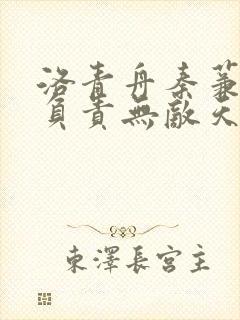 洛青舟秦蒹
負責無敵天
東澤長宮主